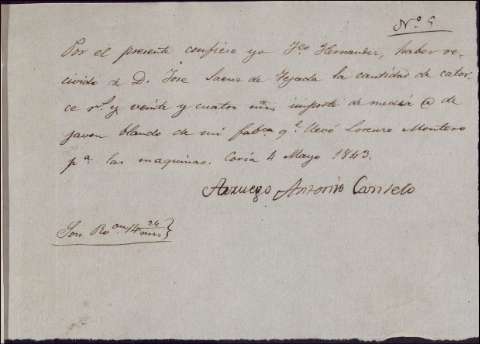 Nº 9
Por el presente confiese yo Fco Hernandez, haber re-
civido de D. Jose Saenz de Tejada la cantidad de cator-
ce rs y veinte y cuatro mrs importe de media @ de
javon blando de mi fabca qe llevó Lorenzo Montero
pa las maquinas. Coria 4 Mayo 1843.
Aruego Antonio Cantelo
Son Ron 14 24 mrs